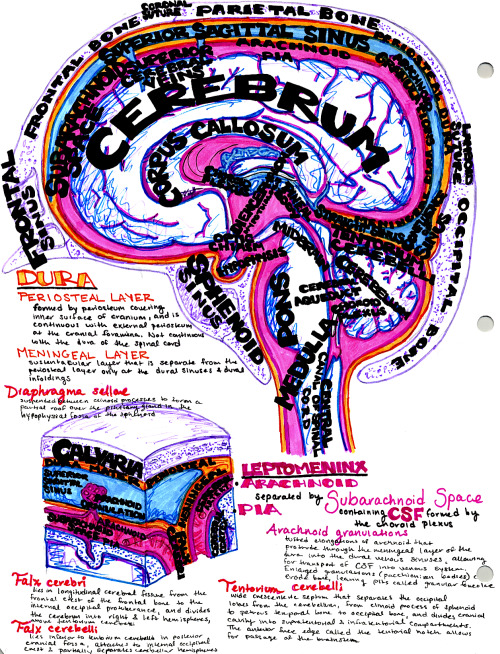 CORONAL
SUTURE
PARIETAL BONE
FRONTAL BONE
SUPERIOR SAGITTAL SINUS
ARACHNOID
PIA
SUPERIOR
CEREBRAL
VEINS
SUBARACHNOID
SPACE
CEREBRUM
CORPUS CALLOSUM
LAMBDOID
SUTURE
OCCIPITAL BONE
FRONTAL
SINUS
TENTORIUM
CEREBELLI
CEREBELLUM
MIDBRAIN
CEREBRAL
AQUEDUCT
PONS
MEDULLA
CENTRAL
CANAL OF SPINAL
CORD
SPHENOID
SINUS
SPHENOID
DURA
PERIOSTEAL LAYER
formed by periosteum covering
inner surface of cranium, and is
continuous with external periosteum
at the cranial foramina. Not continuous
with the dura of the spinal cord
MENINGEAL LAYER
sustentacular layer that is separate from the
periosteal layer only at the dural sinuses & dural
infoldings
Diaphragma sellae
suspended between clinoid processes to form a
partial roof over the pituitary gland in the
hypophysial fossa of the sphenoid
CALVARIA
SUPERIOR
SAGITTAL
SINUS
ARACHNOID
GRANULATION
PERIOSTEAL
LEPTOMENINX
ARACHNOID
separated by Subarachnoid Space
PIA
containing CSF formed by
the choroid plexus
Arachnoid granulations
tufted elongations of arachnoid that
protrude through the meningeal layer of the
dura into the dural venous sinuses, allowing
for transport of CSF into venous system.
Enlarged granulations (pacchionian bodies) can
erode bone, leaving pits called granular foveolae
Falx cerebri
lies in longitudinal cerebral fissure from the
frontal crest of the frontal bone to the
internal occipital protuberance, and divides
the cerebrum into right & left hemispheres,
above tentorium cerebelli
Falx cerebelli
lies inferior to tentorium cerebelli in posterior
cranial fossa, attaches to internal occipital
crest & partially separates cerebellar hemispheres
Tentorium cerebelli
wide crescentic septum that separates the occipital
lobes from the cerebellum, from clinoid process of sphenoid
to petrous temporal bone to occipital bone, and divides cranial
cavity into supratentorial & infratentorial compartments.
The anterior free edge called the tentorial notch allows
for passage of the brainstem.